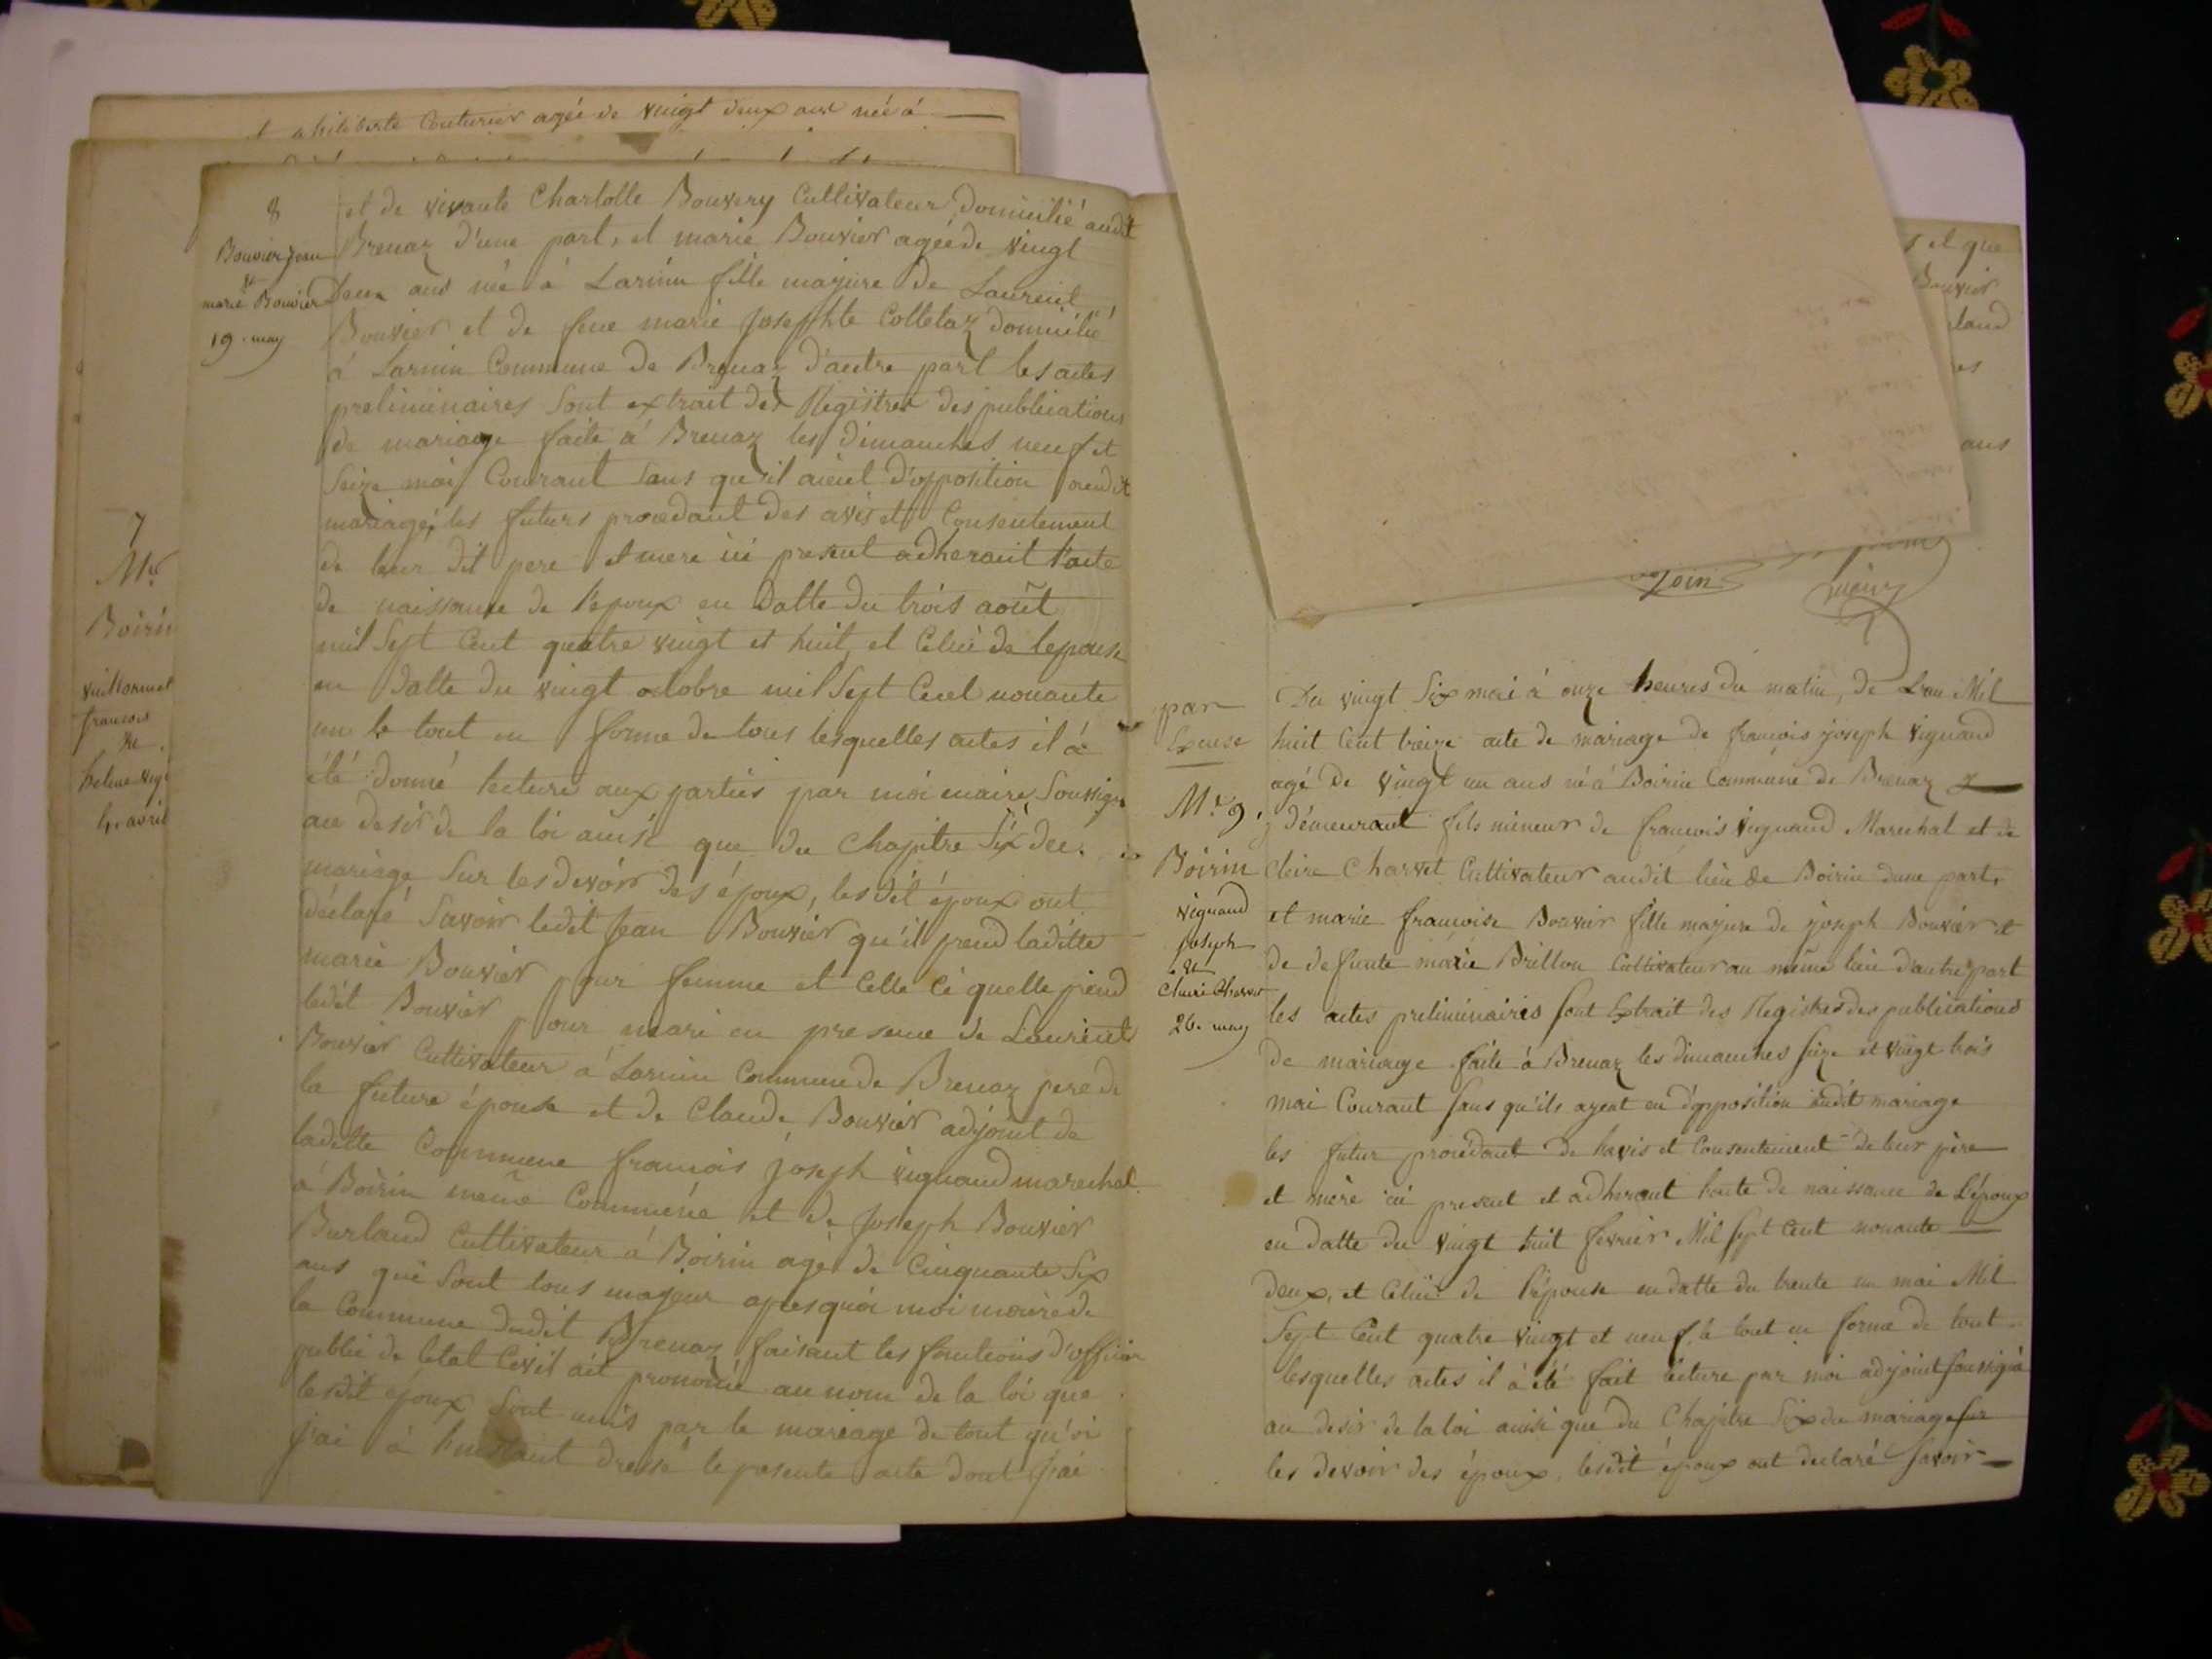 philiberte Couturier agée de vingt deux ans née à
7
Mr
Boirin
vuillormet
francois
&
helene vig
4. avril
8
Bouvier Jean
&
marie Bouvier
19. may
et de vivante Charlotte Bouvery Cultivateur domicilié audit
Brenaz d'une part, et marie Bouvier agée de vingt
Deux ans née à Larnin fille majure de Laurent
Bouvier et de feue marie Josephte Colletaz domicilié
à Larnin Commune de Brenaz d'autre part les actes
preliminaires Sont extrait des Registres des publications
de mariage faite à Brenaz les dimanches neuf et
Seize mai Courant Sans qu'il aient d'opposition audit
mariage, les futurs procedant des avis et Consentement
de leur dit pere et mere ici present adherant l'acte
de naissance de l'epoux en datte du trois août
mil Sept Cent quatre vingt et huit, et Celui de lepouse
en datte du vingt octobre mil Sept Cent nonante
un le tout en forme de tous lesquelles actes il à
été donné lecture aux parties par moi maire Soussigne
au desir de la loi ainsi que du Chapitre Six du
mariage Sur les devoir des époux, les dit époux ont
déclaré Savoir ledit Jean Bouvier qu'il prend laditte
marie Bouvier pour femme et Celle Ci quelle prend
ledit Bouvier pour mari en presence de Laurent
Bouvier Cultivateur à Larnin Commune de Brenaz pere de
la future épouse et de Claude Bouvier adjoint de
laditte Commune francois joseph vignand marechal
à Boirin même Commune et de Joseph Bouvier
Burland Cultivateur à Boirin agé de Cinquante Six
ans qui Sont tous majeur apres quoi moi maire de
la Commune dudit Brenaz faisant les fonctions d'officier
public de letat Civil ait prononcé au nom de la loi que
lesdit époux Sont unis par le mariage de tout qu'oi
j'ai à l'instant dressé le presente acte dont j'ai
s et que
Bouvier
land
es
ans
join
par
Expuse
Mr 9
Boirin
vignand
joseph
&
Claire Charvet
26. may
Du vingt Six mai à onze heures du matin, de Lan Mil
huit Cent treize acte de mariage de francois joseph vignand
agé de vingt un ans né à Boirin Commune de Brenaz
y démeurant fils mineur de francois vignand Marechal et de
Claire Charvet Cultivateur audit lieu de Boirin dune part,
et marie francoise Bouvier fille majure de joseph Bouvier et
de defunte marie Brillon Cultivateur au même lieu d'autre part
les actes preliminaires Sont Extrait des Registres des publications
de mariage faite à Brenaz les dimanches Seize et vingt trois
mai Courant Sans qu'ils ayent eu d'opposition audit mariage
les futur procédant de lavis et Consentement de leur père
et mère ici present et adherant lacte de naissance de L'époux
en datte du vingt huit fevrier Mil Sept Cent nonante
deux, et Celui de l'épouse en datte du trente un mai Mil
Sept Cent quatre vingt et neuf, le tout en forme de tout
lesquelles actes il à été fait lecture par moi adjoint Soussigné
au desir de la loi ainsi que du Chapitre Six du mariage Sur
les devoir des époux, lesdit époux ont declaré Savoir